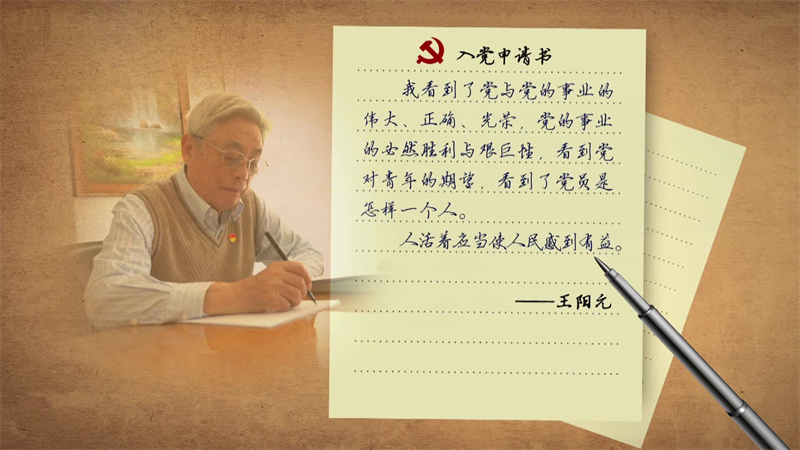 入党申请书
我看到了党与党的事业的
伟大、正确、光荣，党的事业
的必然胜利与艰巨性，看到党
对青年的期望，看到了党员是
怎样一个人。
人活着应当使人民感到有益。
——王阳元